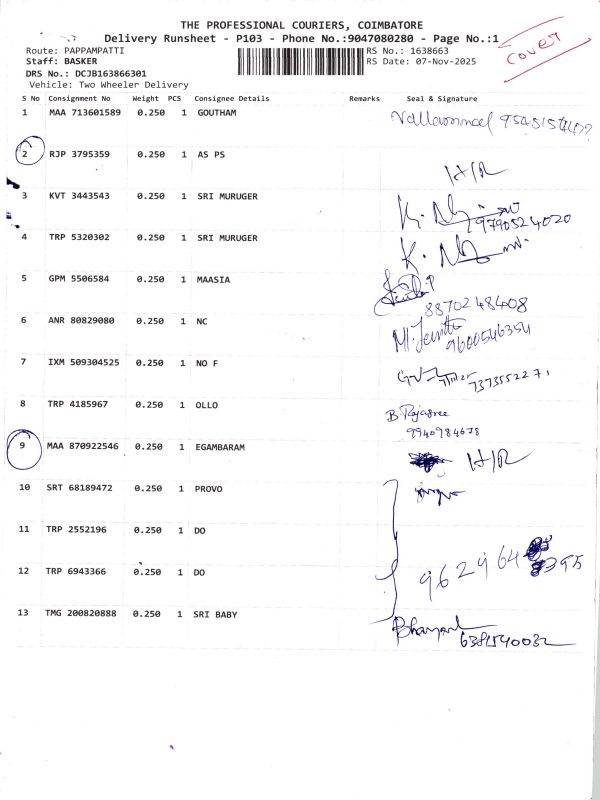 THE PROFESSIONAL COURIERS, COIMBATORE
Delivery Runsheet - P103 - Phone No.:9047080280 - Page No.:1
cover
Route: PAPPAMPATTI
RS No.: 1638663
Staff: BASKER
RS Date: 07-Nov-2025
DRS No.: DCJB163866301
Vehicle: Two Wheeler Delivery
S No Consignment No Weight PCS Consignee Details Remarks Seal & Signature
1 MAA 713601589 0.250 1 GOUTHAM
2 RJP 3795359 0.250 1 AS PS H/R
3 KVT 3443543 0.250 1 SRI MURUGER
9790524020
4 TRP 5320302 0.250 1 SRI MURUGER
5 GPM 5506584 0.250 1 MAASIA
8870248408
6 ANR 80829080 0.250 1 NC
9600546354
7 IXM 509304525 0.250 1 NO F
7373552271
8 TRP 4185967 0.250 1 OLLO B. Rajasree
9940984678
9 MAA 870922546 0.250 1 EGAMBARAM H/R
10 SRT 68189472 0.250 1 PROVO
11 TRP 2552196 0.250 1 DO
12 TRP 6943366 0.250 1 DO
962964 395
13 TMG 200820888 0.250 1 SRI BABY
6381540032